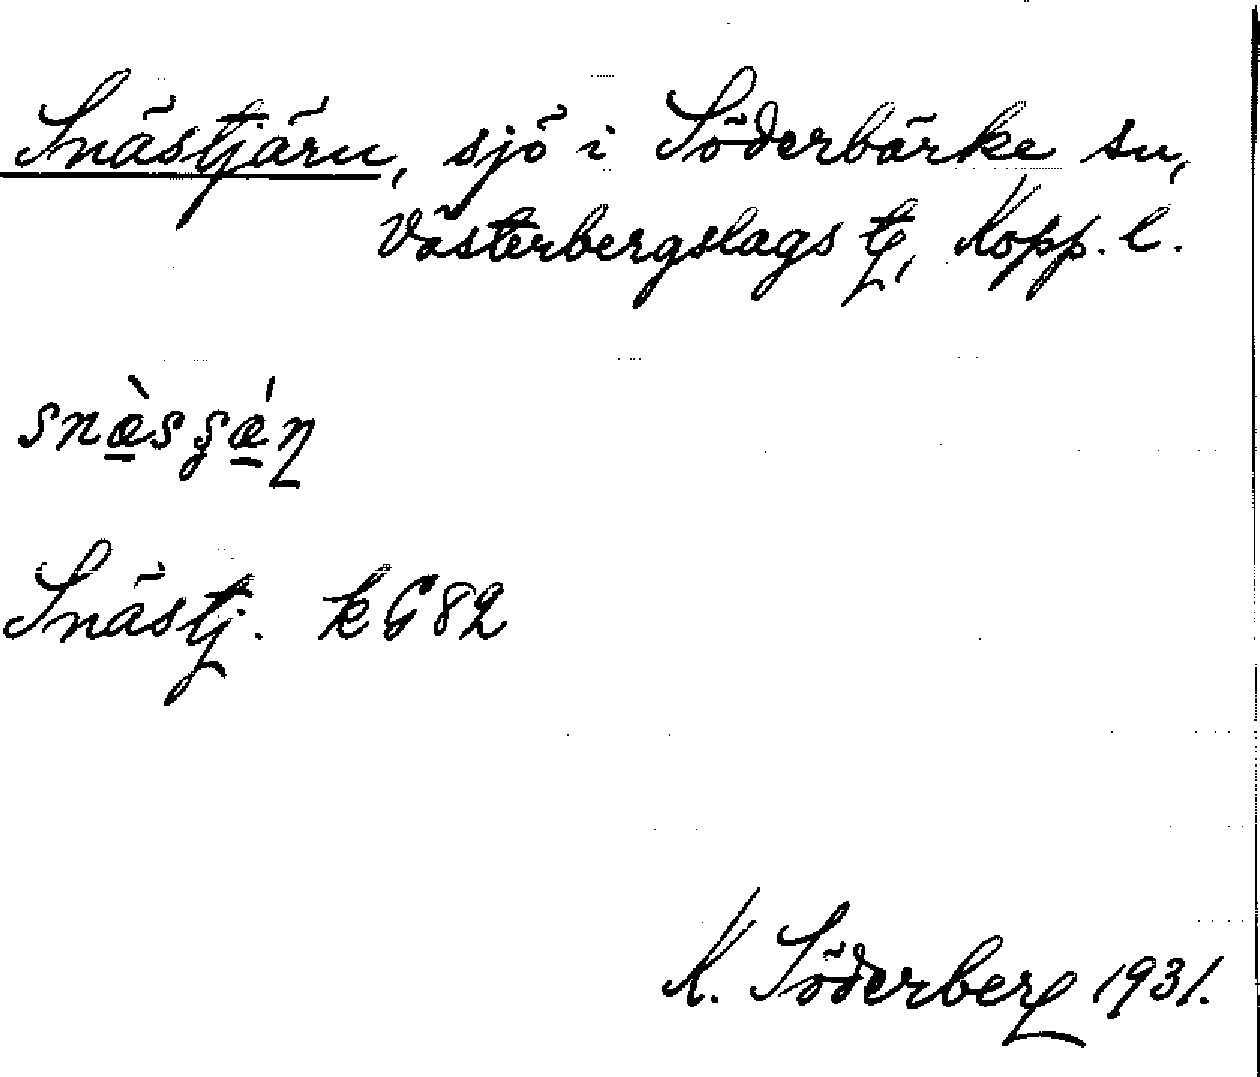 Snästjärn, sjö i Söderbärke sn,
Västerbergslags tg, Kopp. l.
Snästj. kG82
K. Söderberg 1931.